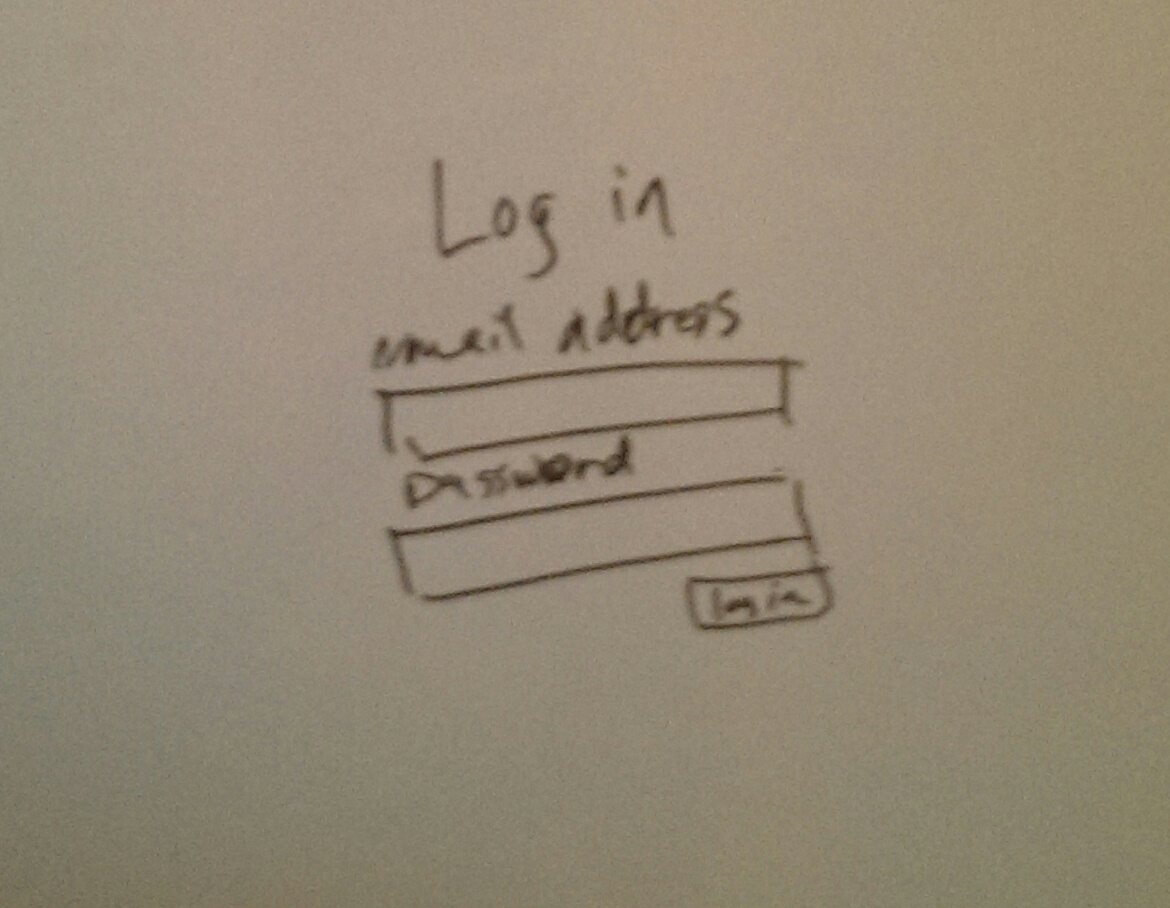 Log in
email address
password
log in